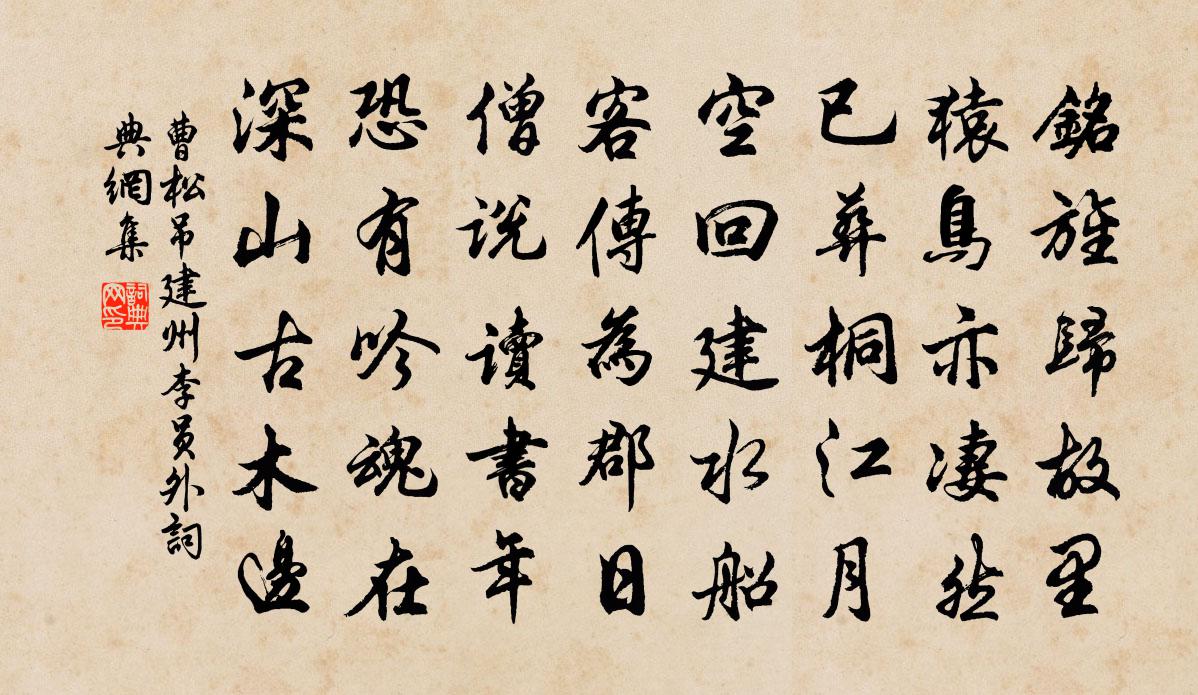 銘旌歸故里
猿鳥亦凄然
已葬桐江月
空回建水船
客傳為郡日
僧説讀書年
恐有吟魂在
深山古木邊
曹松吊建州李員外詞
典網集
詞典网印